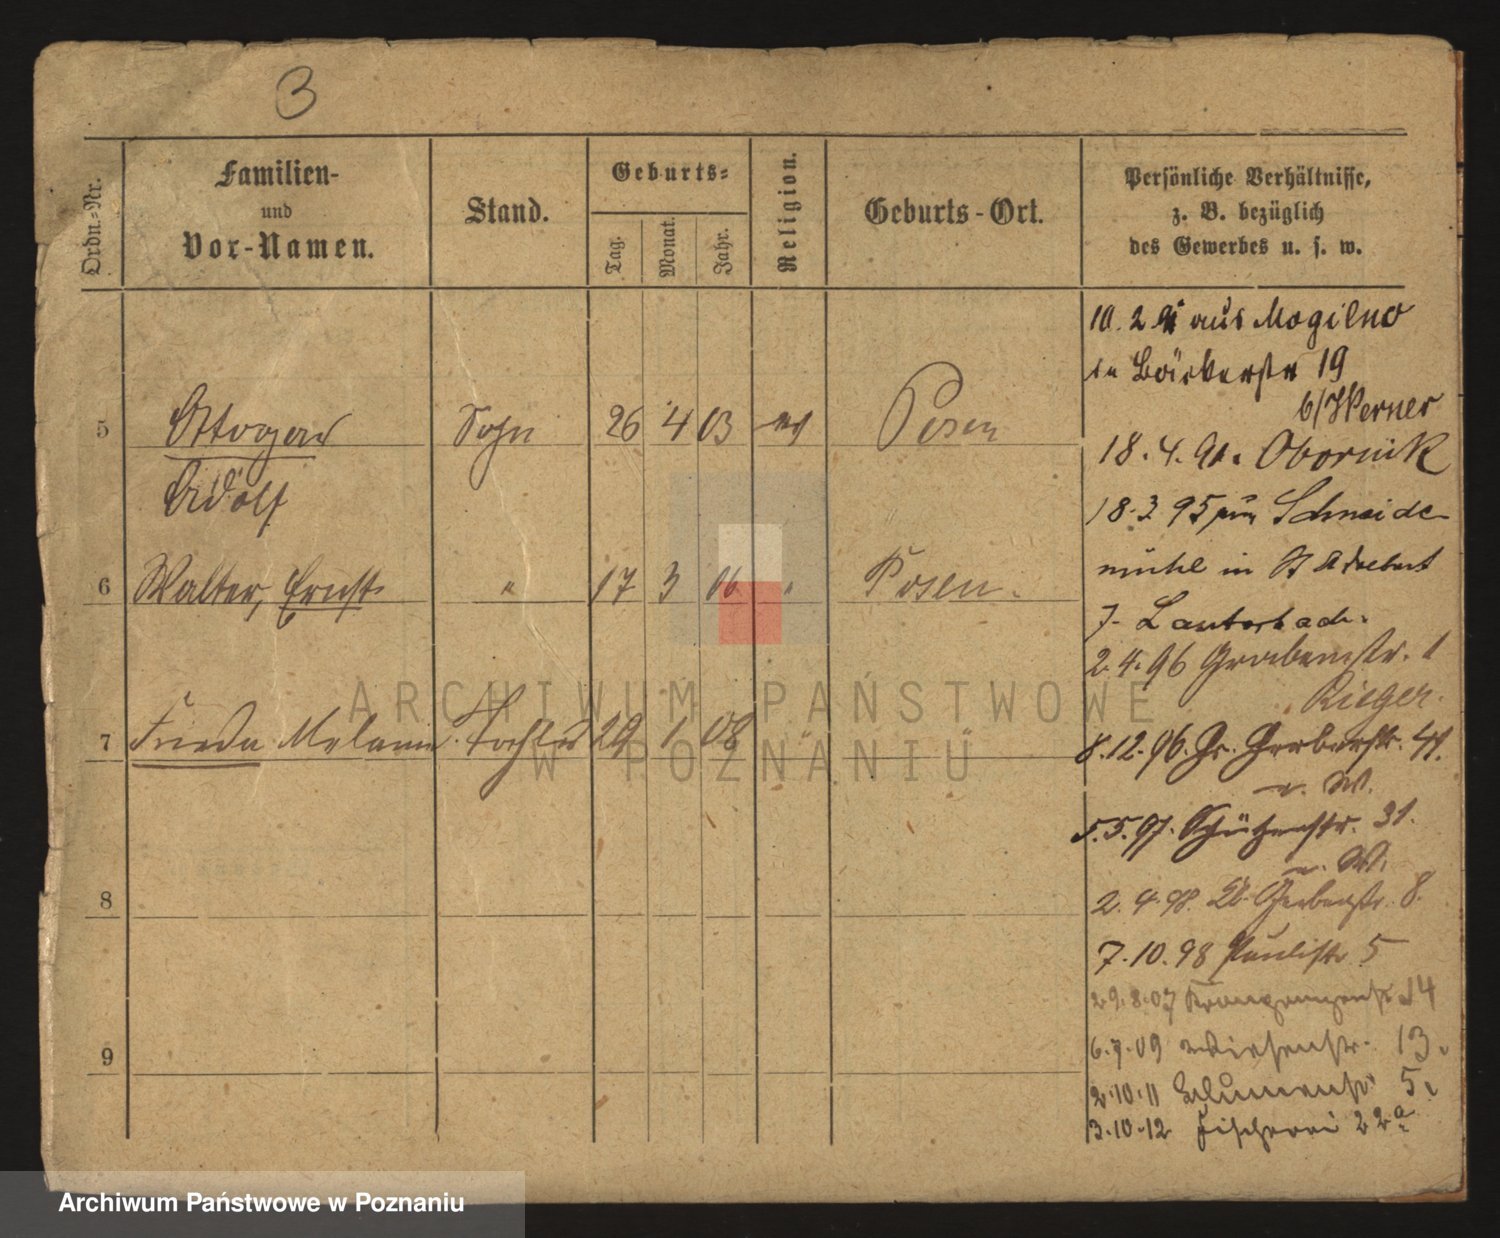 3
Ordn.-Nr.
Familien-
und
Vor-Namen.
Stand.
Geburts-
Tag.
Monat.
Jahr.
Religion.
Geburts-Ort.
Persönliche Verhältnisse,
z. B. bezüglich
des Gewerbes u. s. w.
5 Ottogar Sohn 26 4 03 ev Posen
Adolf
6 Walter, Ernst " 17 3 06 " Posen.
7 Frieda Melanie Tochter 29 1 08 " "
8
9
10. 2 91 aus Mogilno
in Bäckerstr 19
b/Werner
18. 4. 91. Obornik
18. 3 95 Schneide
mühl in St Adalbert
7- Lauterbach.
2. 4. 96 Grabenstr. 1
Rieger.
8. 12. 96. Gr. Gerberstr. 41.
v. W.
5. 5. 97. Schützenstr. 31.
v. W.
2. 4. 98. Kl. Gerberstr. 8.
7. 10. 98 Paulistr 5
29. 8. 07 14
6. 7. 09 Wiesenstr. 13.
2. 10. 11 Blumenstr 5.
3. 10. 12 Fischerei 22a
ARCHIWUM PAŃSTWOWE
W POZNANIU
Archiwum Państwowe w Poznaniu